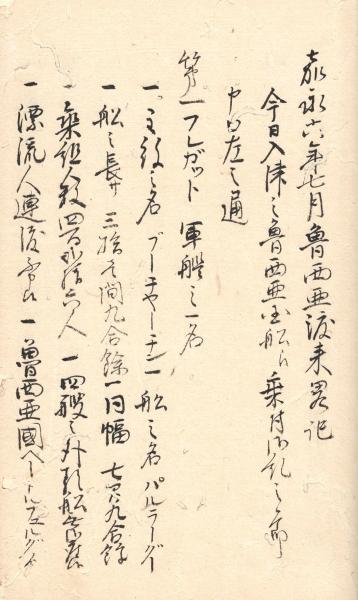 嘉永六年七月魯西亜渡来略記
今日入津之魯西亜国船江乗付御糺之節
申口左之通
第一フレガット 軍艦之一名
一 主役之名 プーチャーチン 一 船之名 パルラーダ
一 船之長サ 三拾 間九合余 一 同幅 七間九合余
一 乗組人数四百 拾六人 一 四艘之外類船無
一 漂流人連渡 一 魯西亜国ペートル